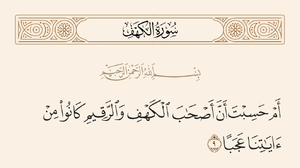 سُورَةُ الكَهْفِ
بِسْمِ اللَّهِ الرَّحْمَٰنِ الرَّحِيمِ
أَمْ حَسِبْتَ أَنَّ أَصْحَٰبَ ٱلْكَهْفِ وَٱلرَّقِيمِ كَانُوا۟ مِنْ
ءَايَٰتِنَا عَجَبًا ٩